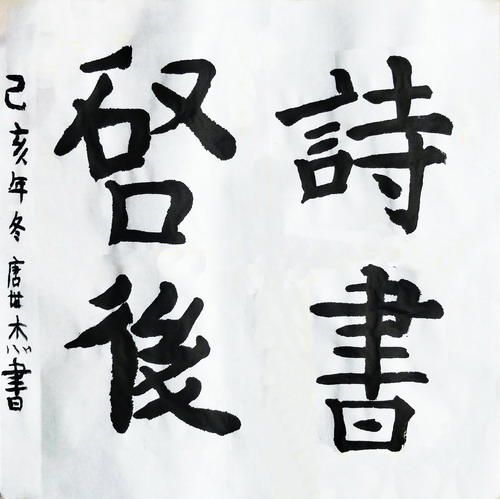 詩書
啓後
己亥年冬唐世杰書